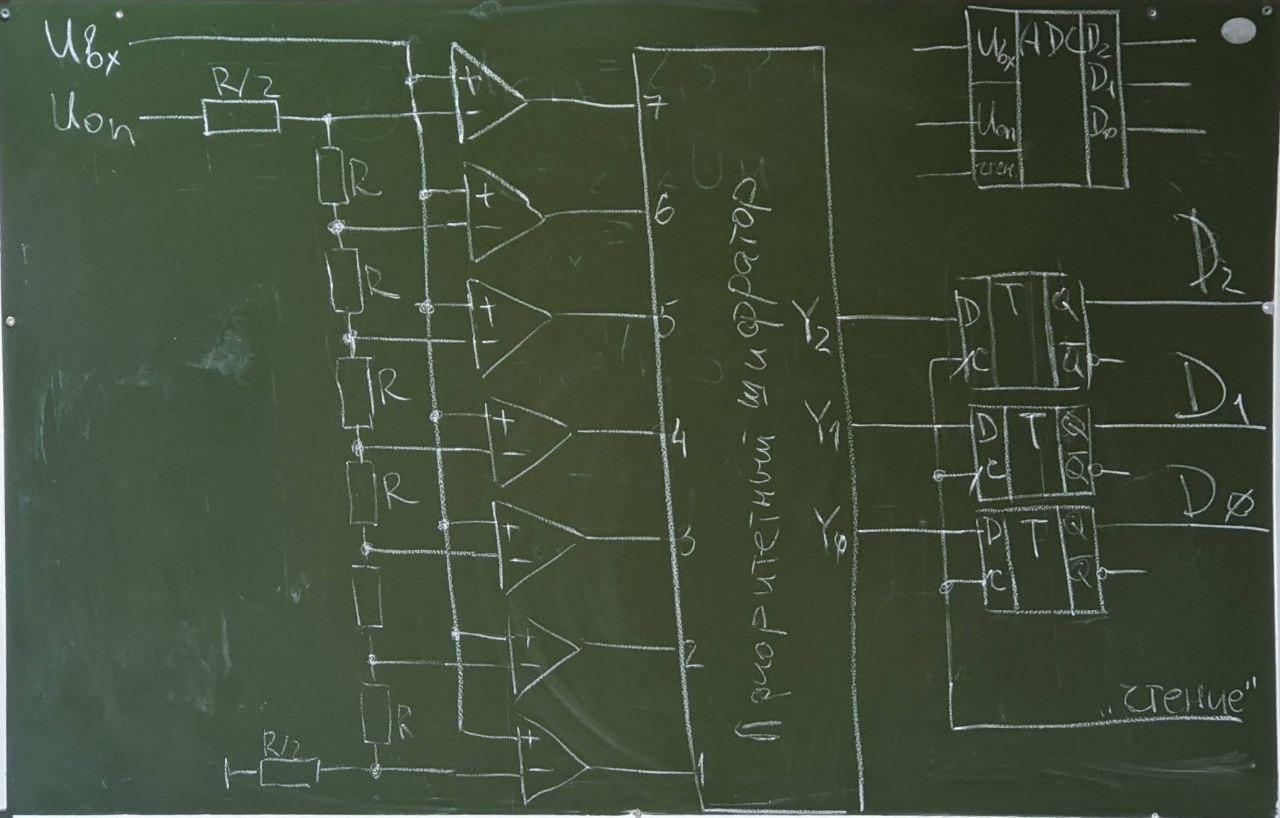 Uвх
Uоп
R/2
R
R
R
R
R
R/2
+
−
+
−
+
−
+
−
+
−
+
−
+
−
7
6
5
4
3
2
1
Приоритетный шифратор
Y2
Y1
Y0
Uвх ADC D2
D1
Uоп D0
чтен
D T Q
C Q̅
D T Q
C Q̅
D T Q
C Q̅
D2
D1
D0
„чтение"